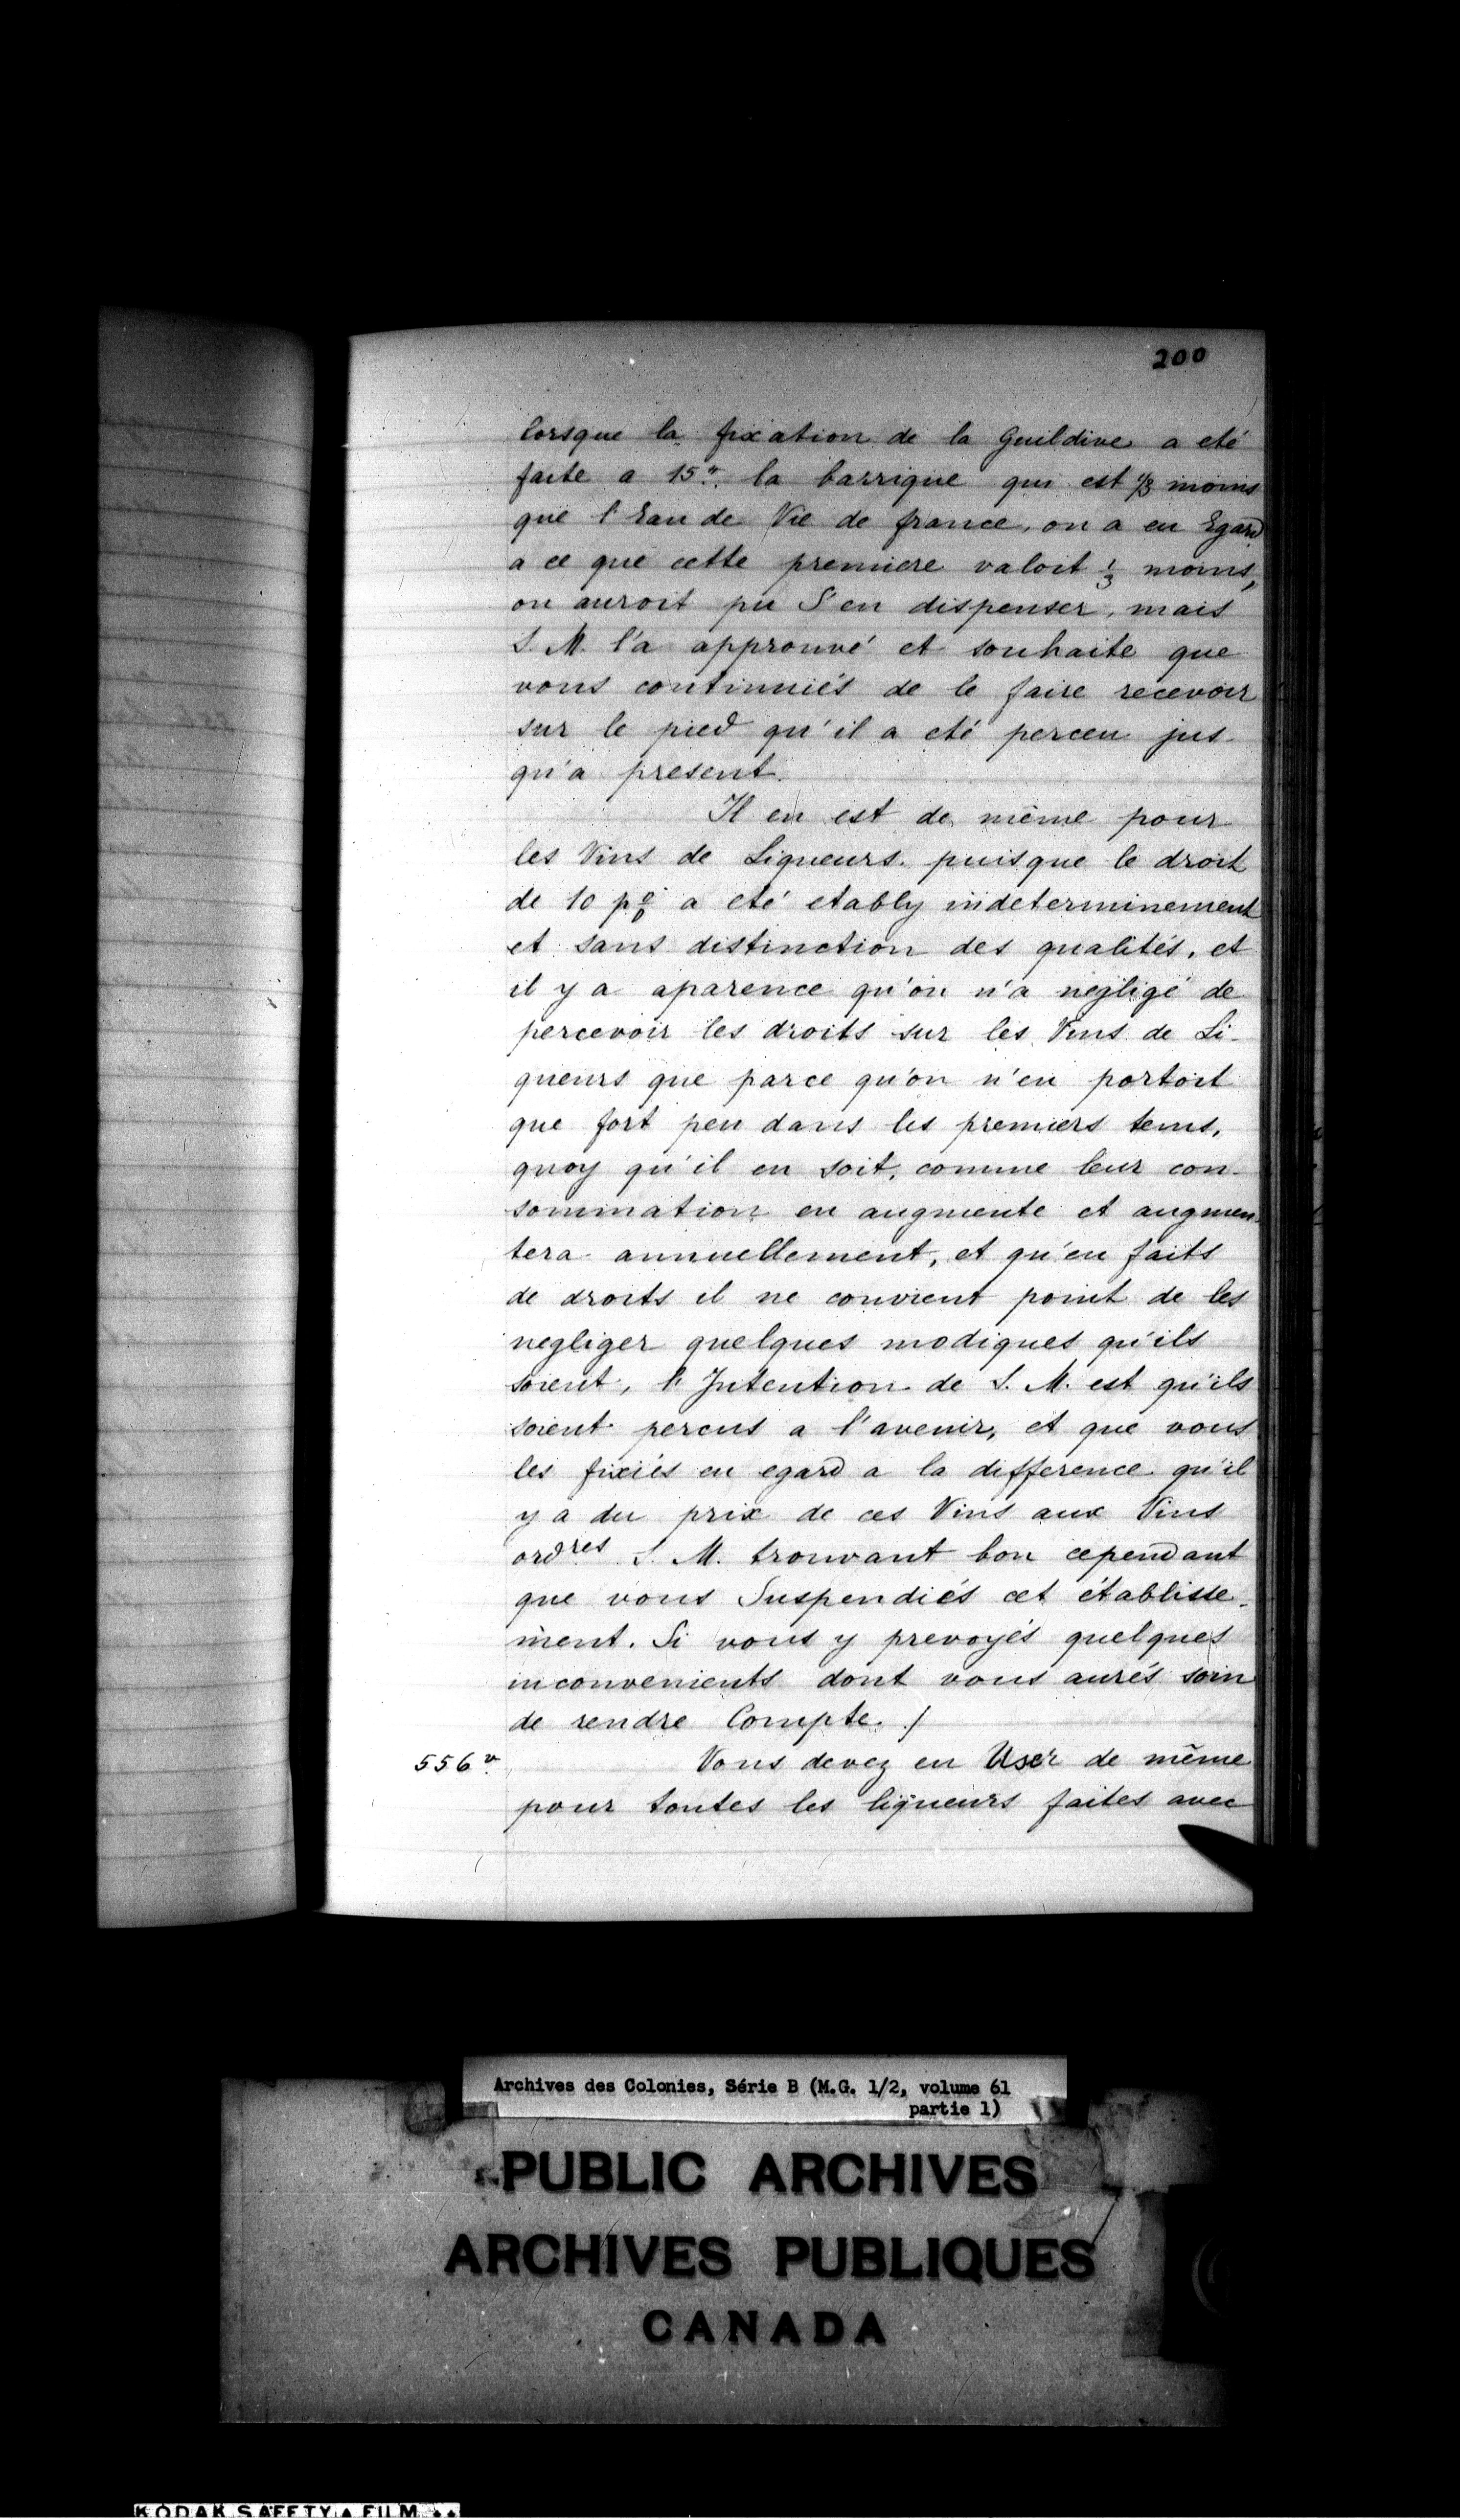 200
lorsque la fixation de la Guildive a eté
faite a 15tt. la barrique qui est 1/3 moins
que l'Eau de Vie de france, on a eu Egard
a ce que cette premiere valoit 1/3 moins,
on auroit pu S'en dispenser, mais
S. M. l'a approuvé et souhaite que
vous continuiés de le faire recevoir
sur le pied qu'il a eté perceu jus-
qu'a present.
Il en est de même pour
les Vins de Liqueurs. puisque le droit
de 10 p% a eté etably indeterminement
et sans distinction des qualités, et
il y a aparence qu'on n'a negligé de
percevoir les droits sur les Vins de Li-
queurs que parce qu'on n'en portoit
que fort peu dans les premiers tems,
quoy qu'il en soit, comme leur con-
sommation en augmente et augmen-
tera annuellement, et qu'en faits
de droits il ne convient point de les
negliger quelques modiques qu'ils
soient, l'Intention de S. M. est qu'ils
soient percus a l'avenir, et que vous
les fixiés eu egard a la difference qu'il
y a du prix de ces Vins aux Vins
ordres S. M. trouvant bon cependant
que vous Suspendiés cet établisse-
ment. Si vous y prevoyés quelques
inconvenients dont vous aurés soin
de rendre Compte. /
556 v. Vous devez en User de même
pour toutes les liqueurs faites avec
Archives des Colonies, Série B (M.G. 1/2, volume 61
partie 1)
PUBLIC ARCHIVES
ARCHIVES PUBLIQUES
CANADA
KODAK SAFETY FILM